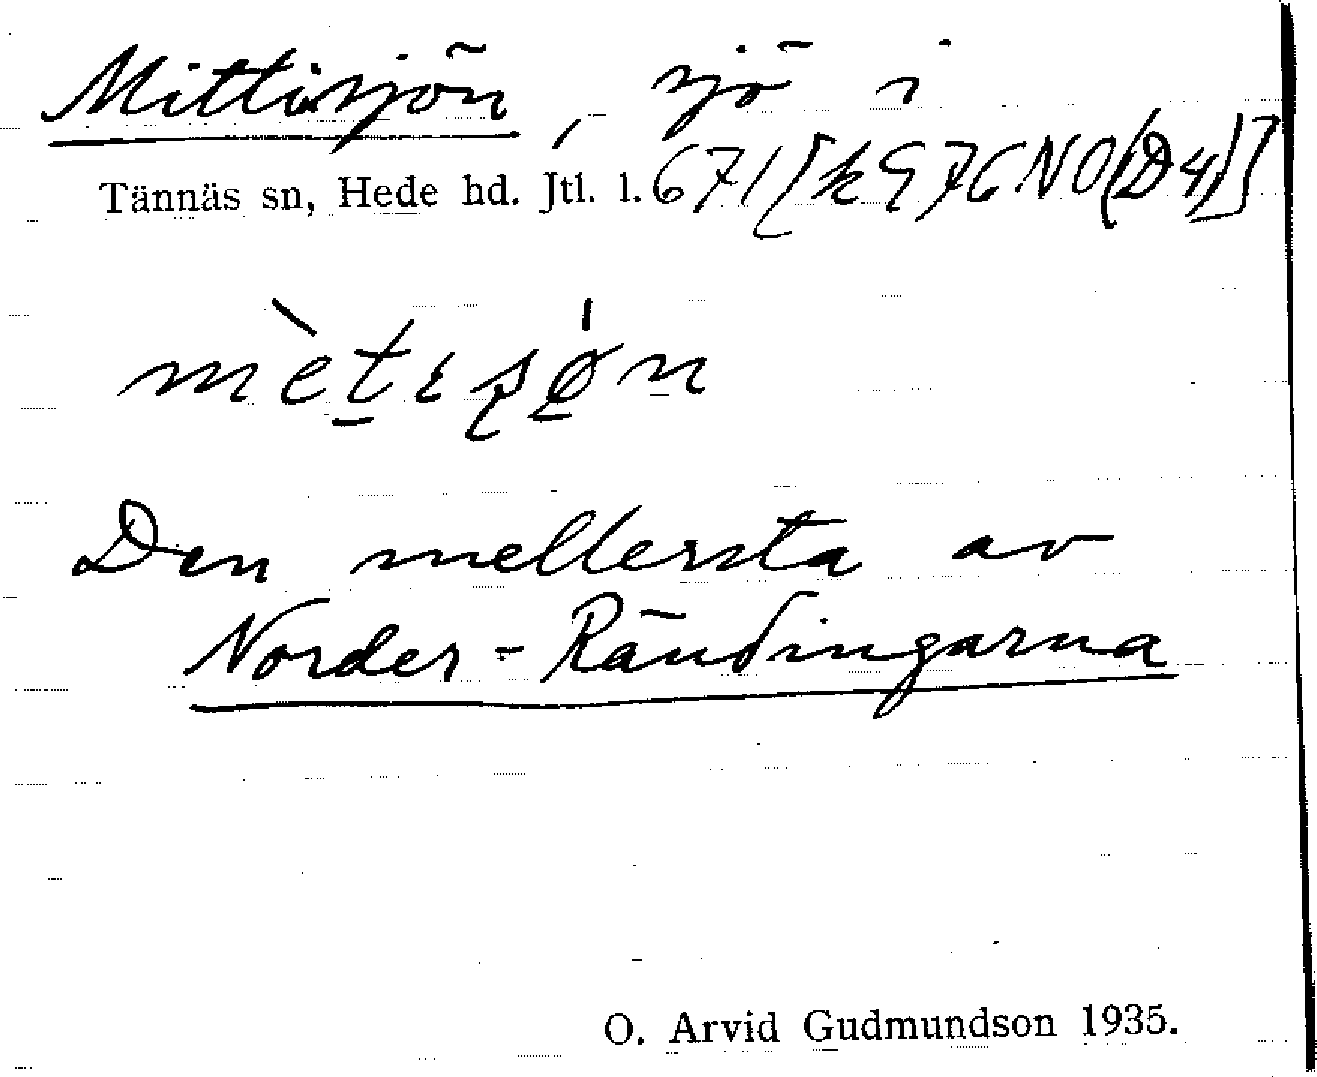 Mittisjön, sjö i
Tännäs sn, Hede hd. Jtl. l. 671 [k 976 NO (D 4)]
mètɩʂǿ̱n
Den mellersta av
Norder-Rändingarna
O. Arvid Gudmundson 1935.